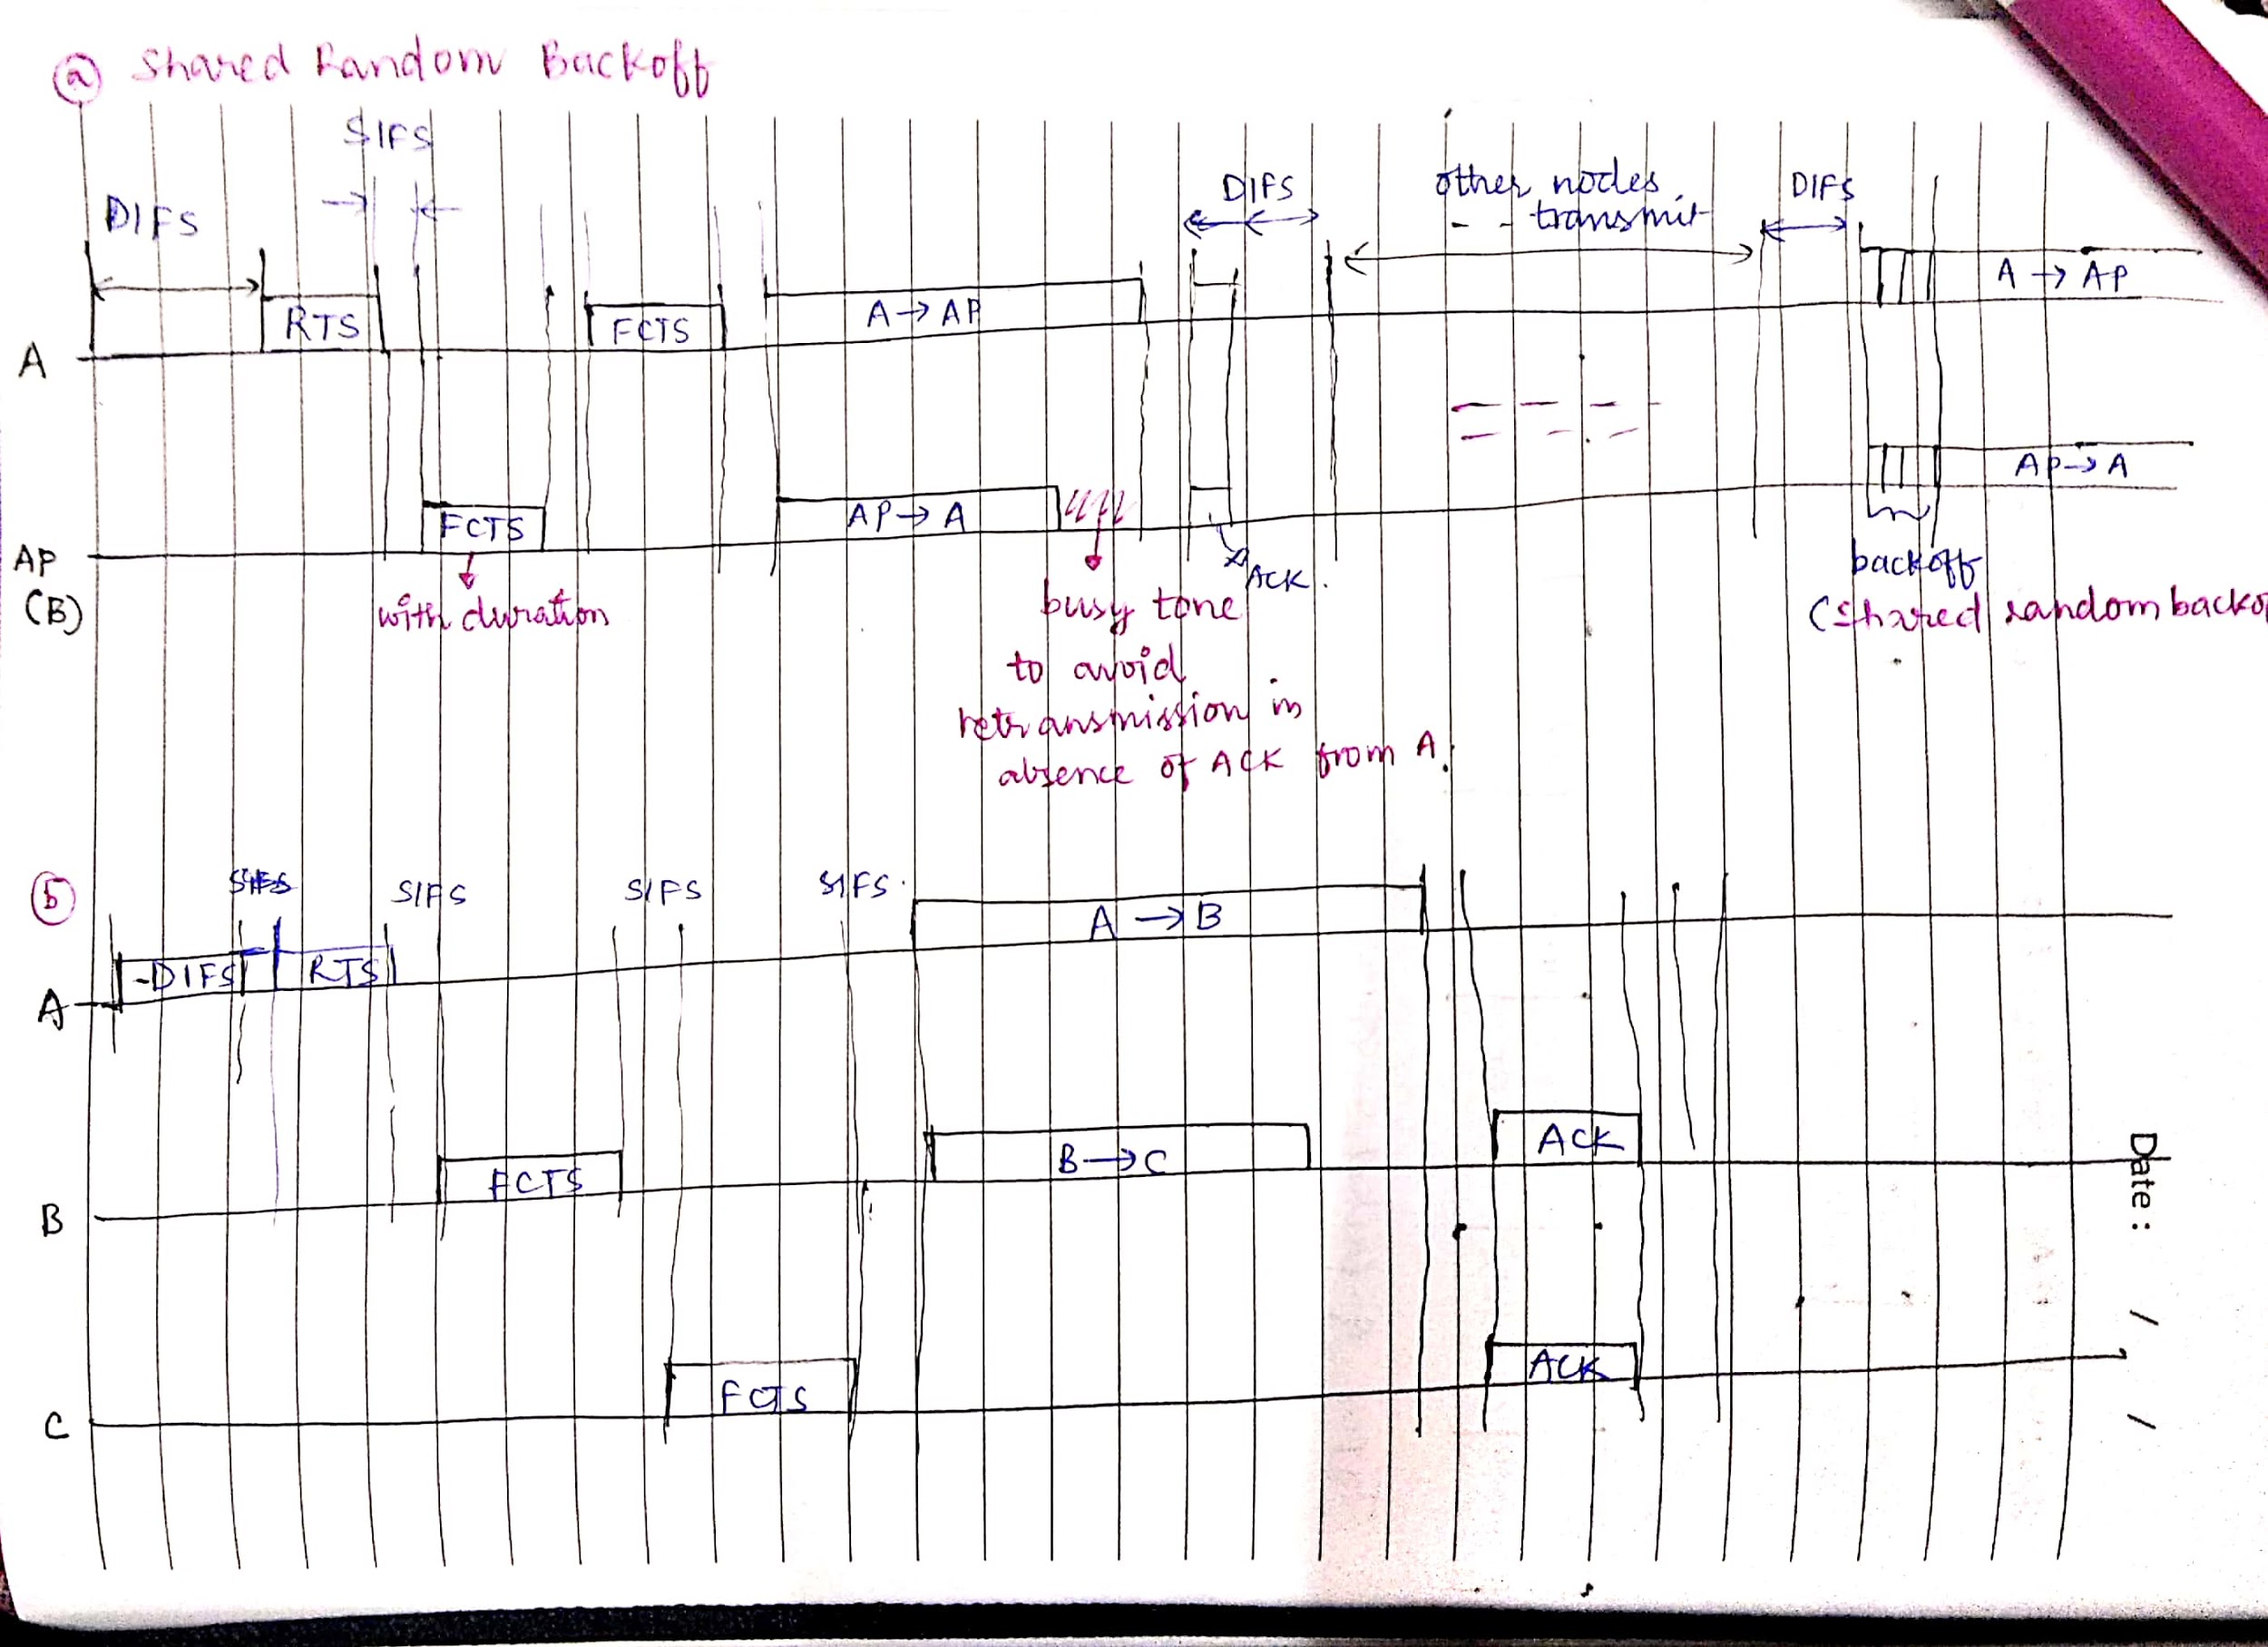 (a) Shared Random Backoff
SIFS
DIFS
DIFS
other nodes
- - transmit
DIFS
RTS
FCTS
A → AP
A → AP
A
FCTS
AP → A
AP → A
AP
(B)
with duration
ACK.
busy tone
to avoid
retransmission in
absence of ACK from A.
backoff
(Shared random backo
(b)
SIFS
SIFS
SIFS
SIFS.
-DIFS
RTS
A → B
A
FCTS
B → C
ACK
B
FCTS
ACK
C
Date: / /